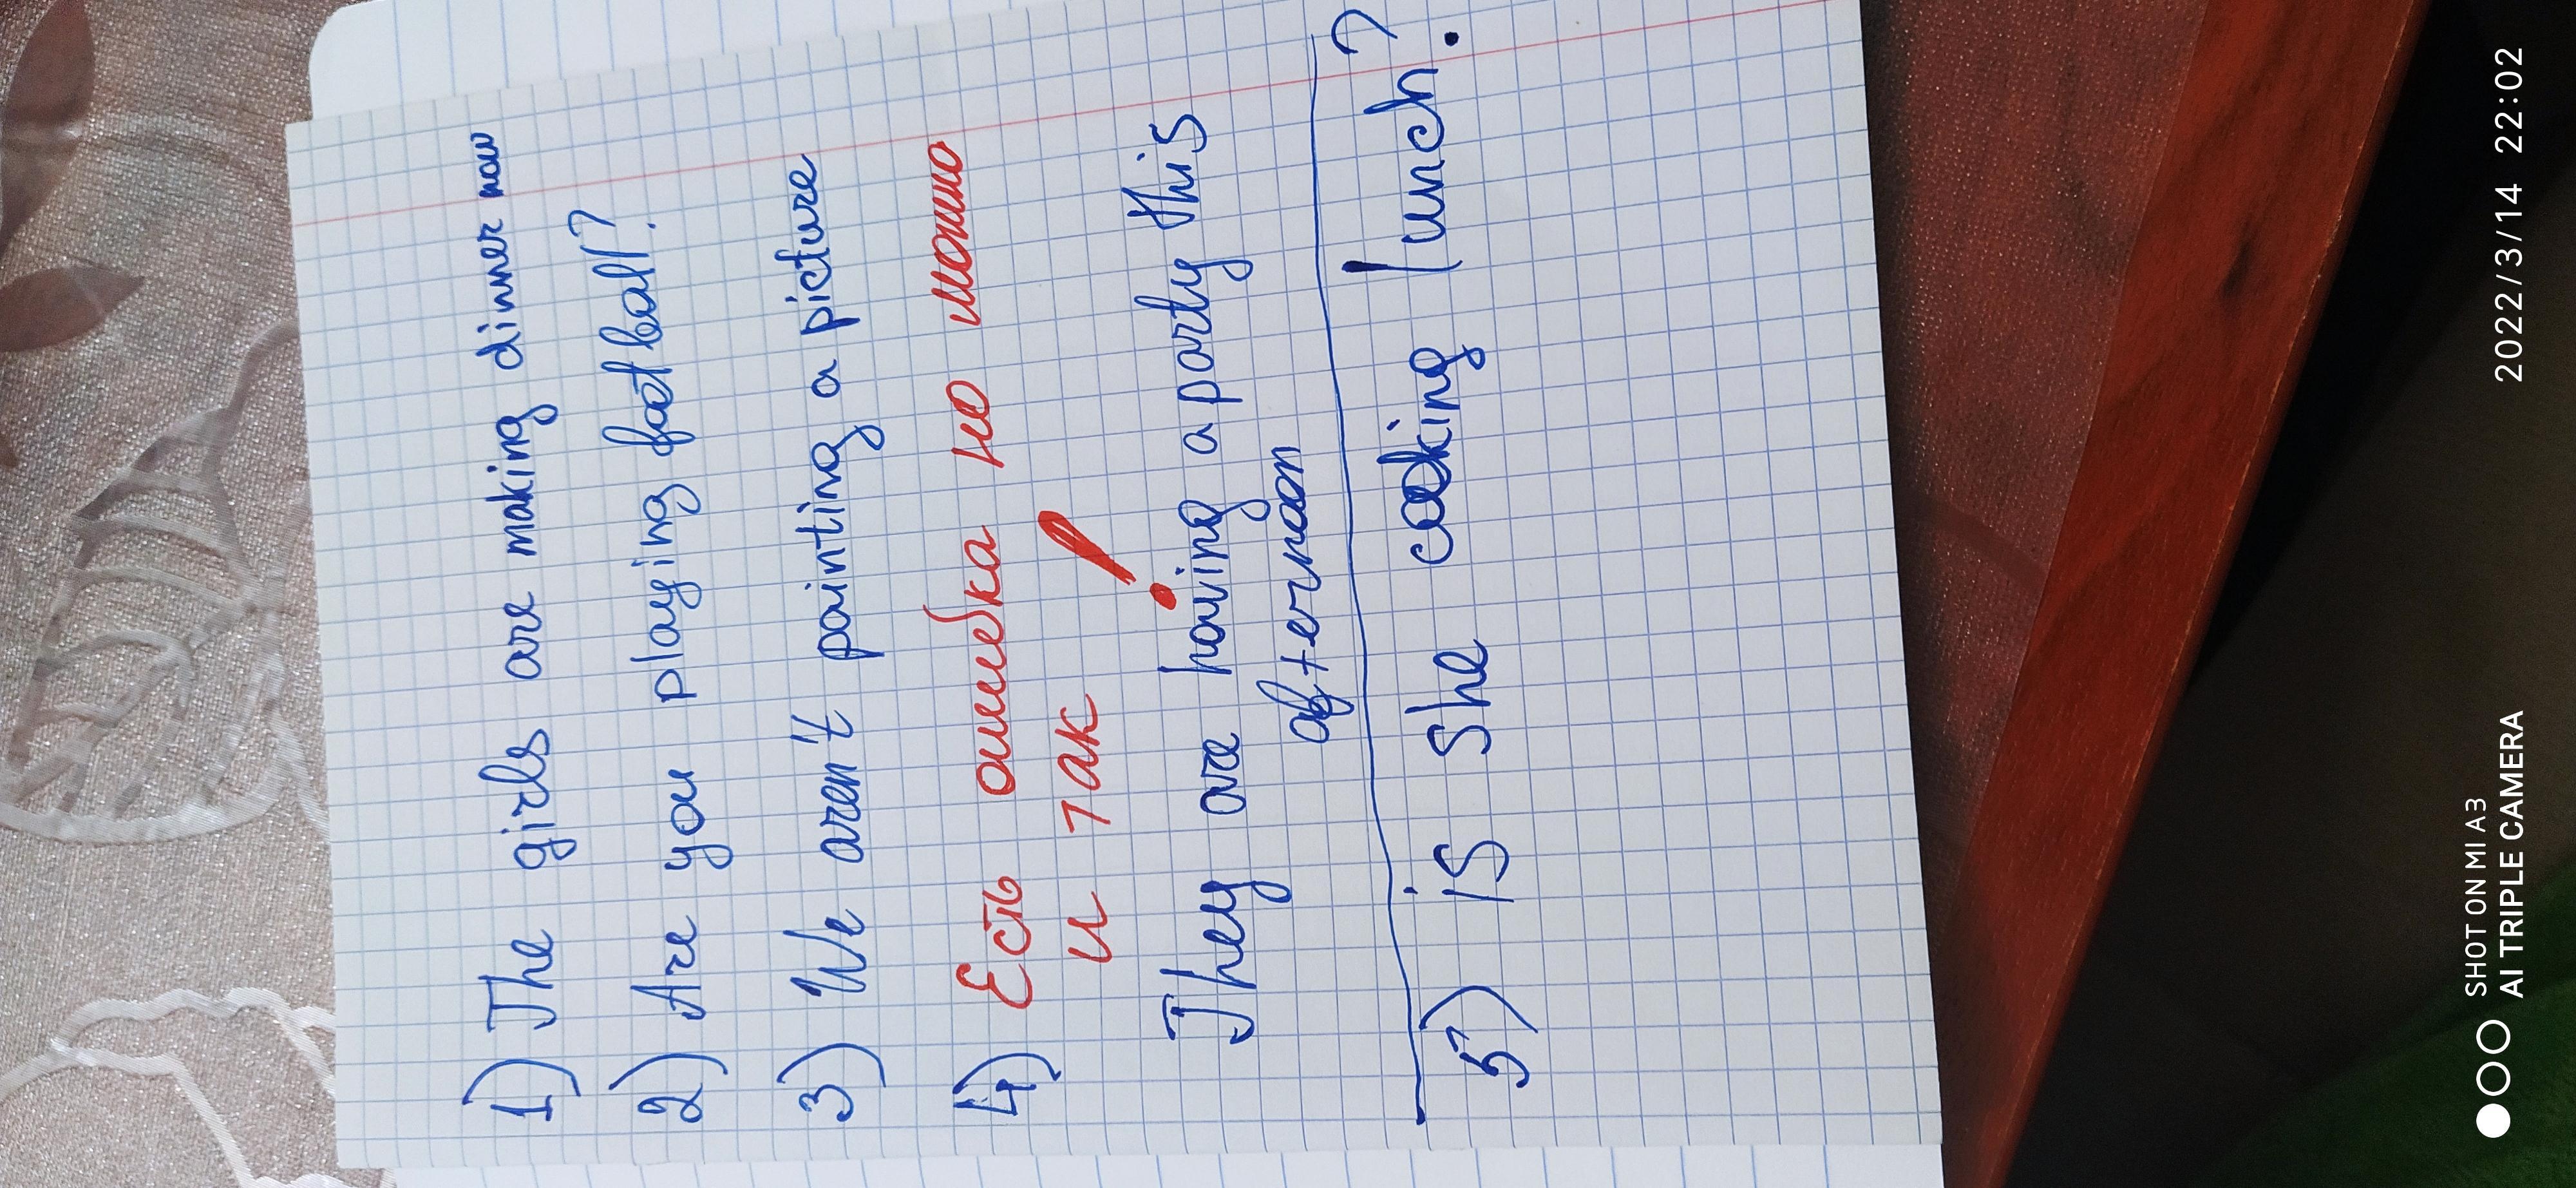 1) The girls are making dinner now
2) Are you playing football?
3) We aren't painting a picture
4) Есть ошибка но можно
и так !
They are having a party this
afternoon
5) is she cooking lunch?
SHOT ON MI A3
AI TRIPLE CAMERA
2022/3/14 22:02